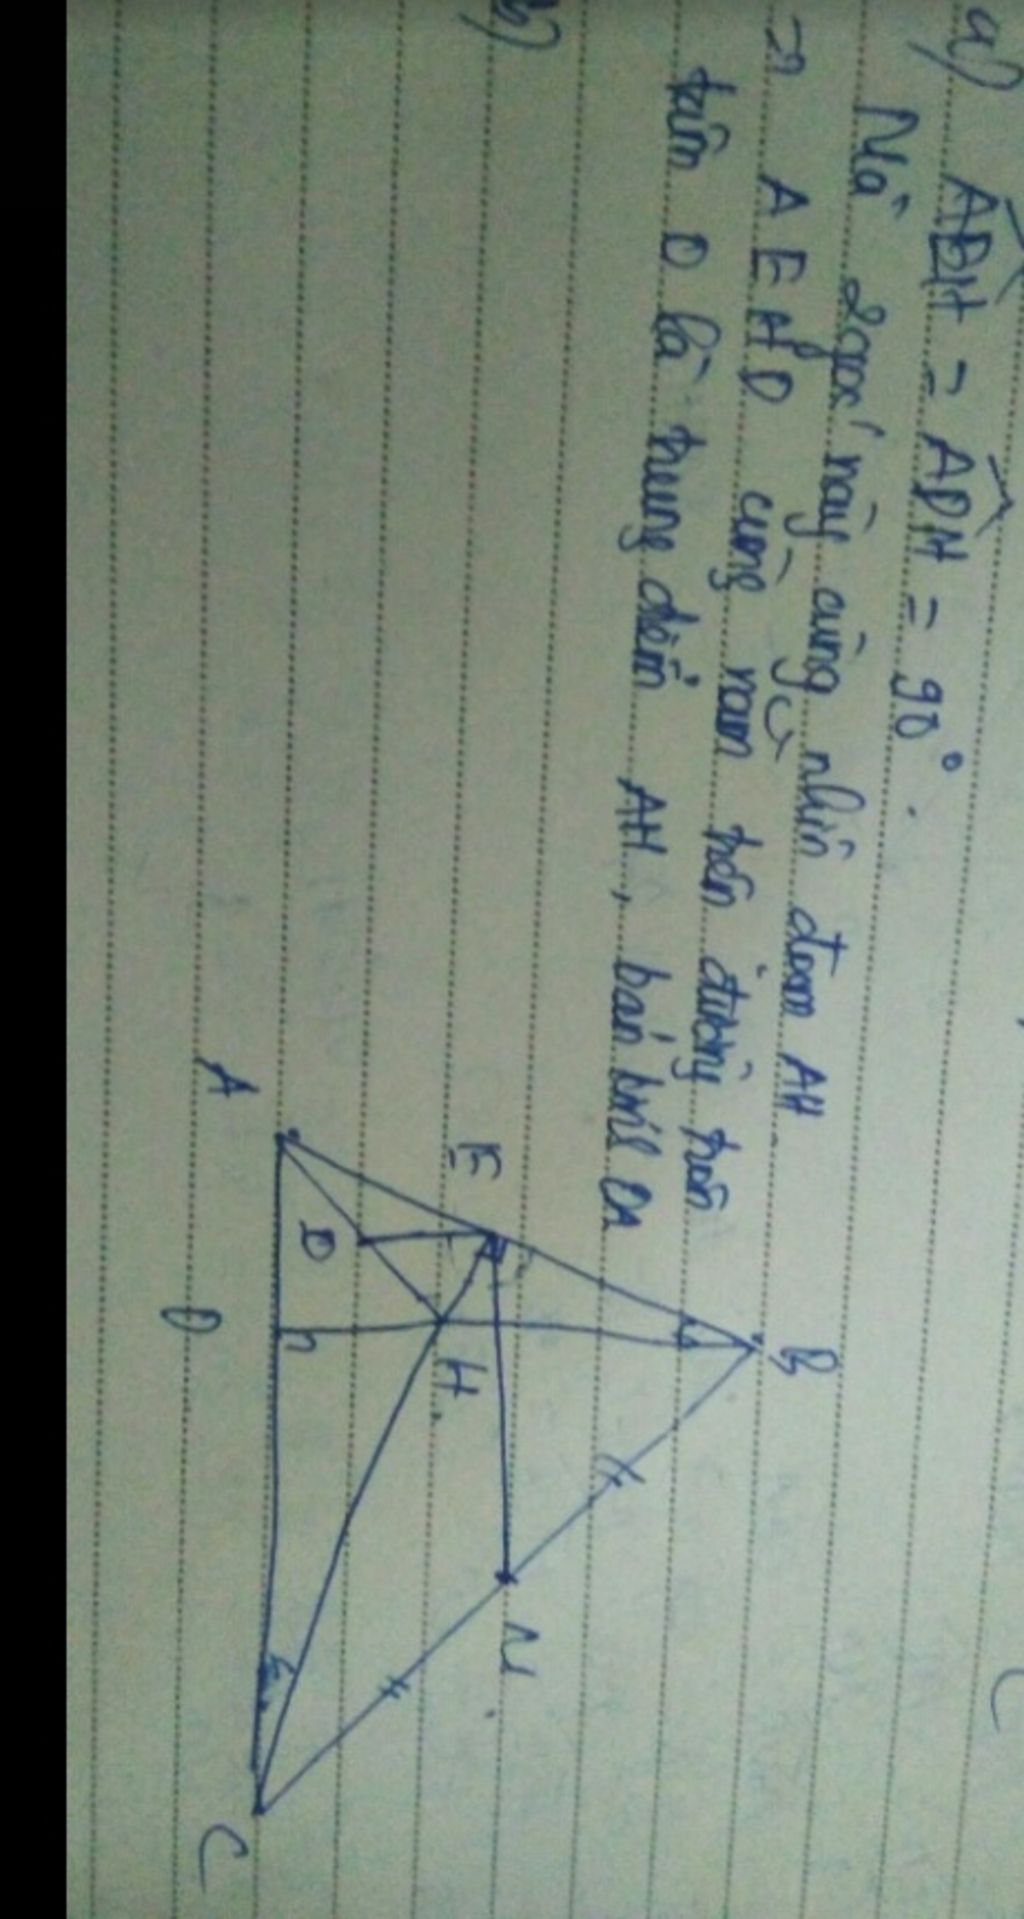 a) ADH = ADH = 90°.
Mà 2 góc này cùng nhìn đoạn AH.
=> A E H D cùng nằm trên đường tròn
tâm O là trung điểm AH, bán kính OA
b)
B
E
M
H
A
O
D
C